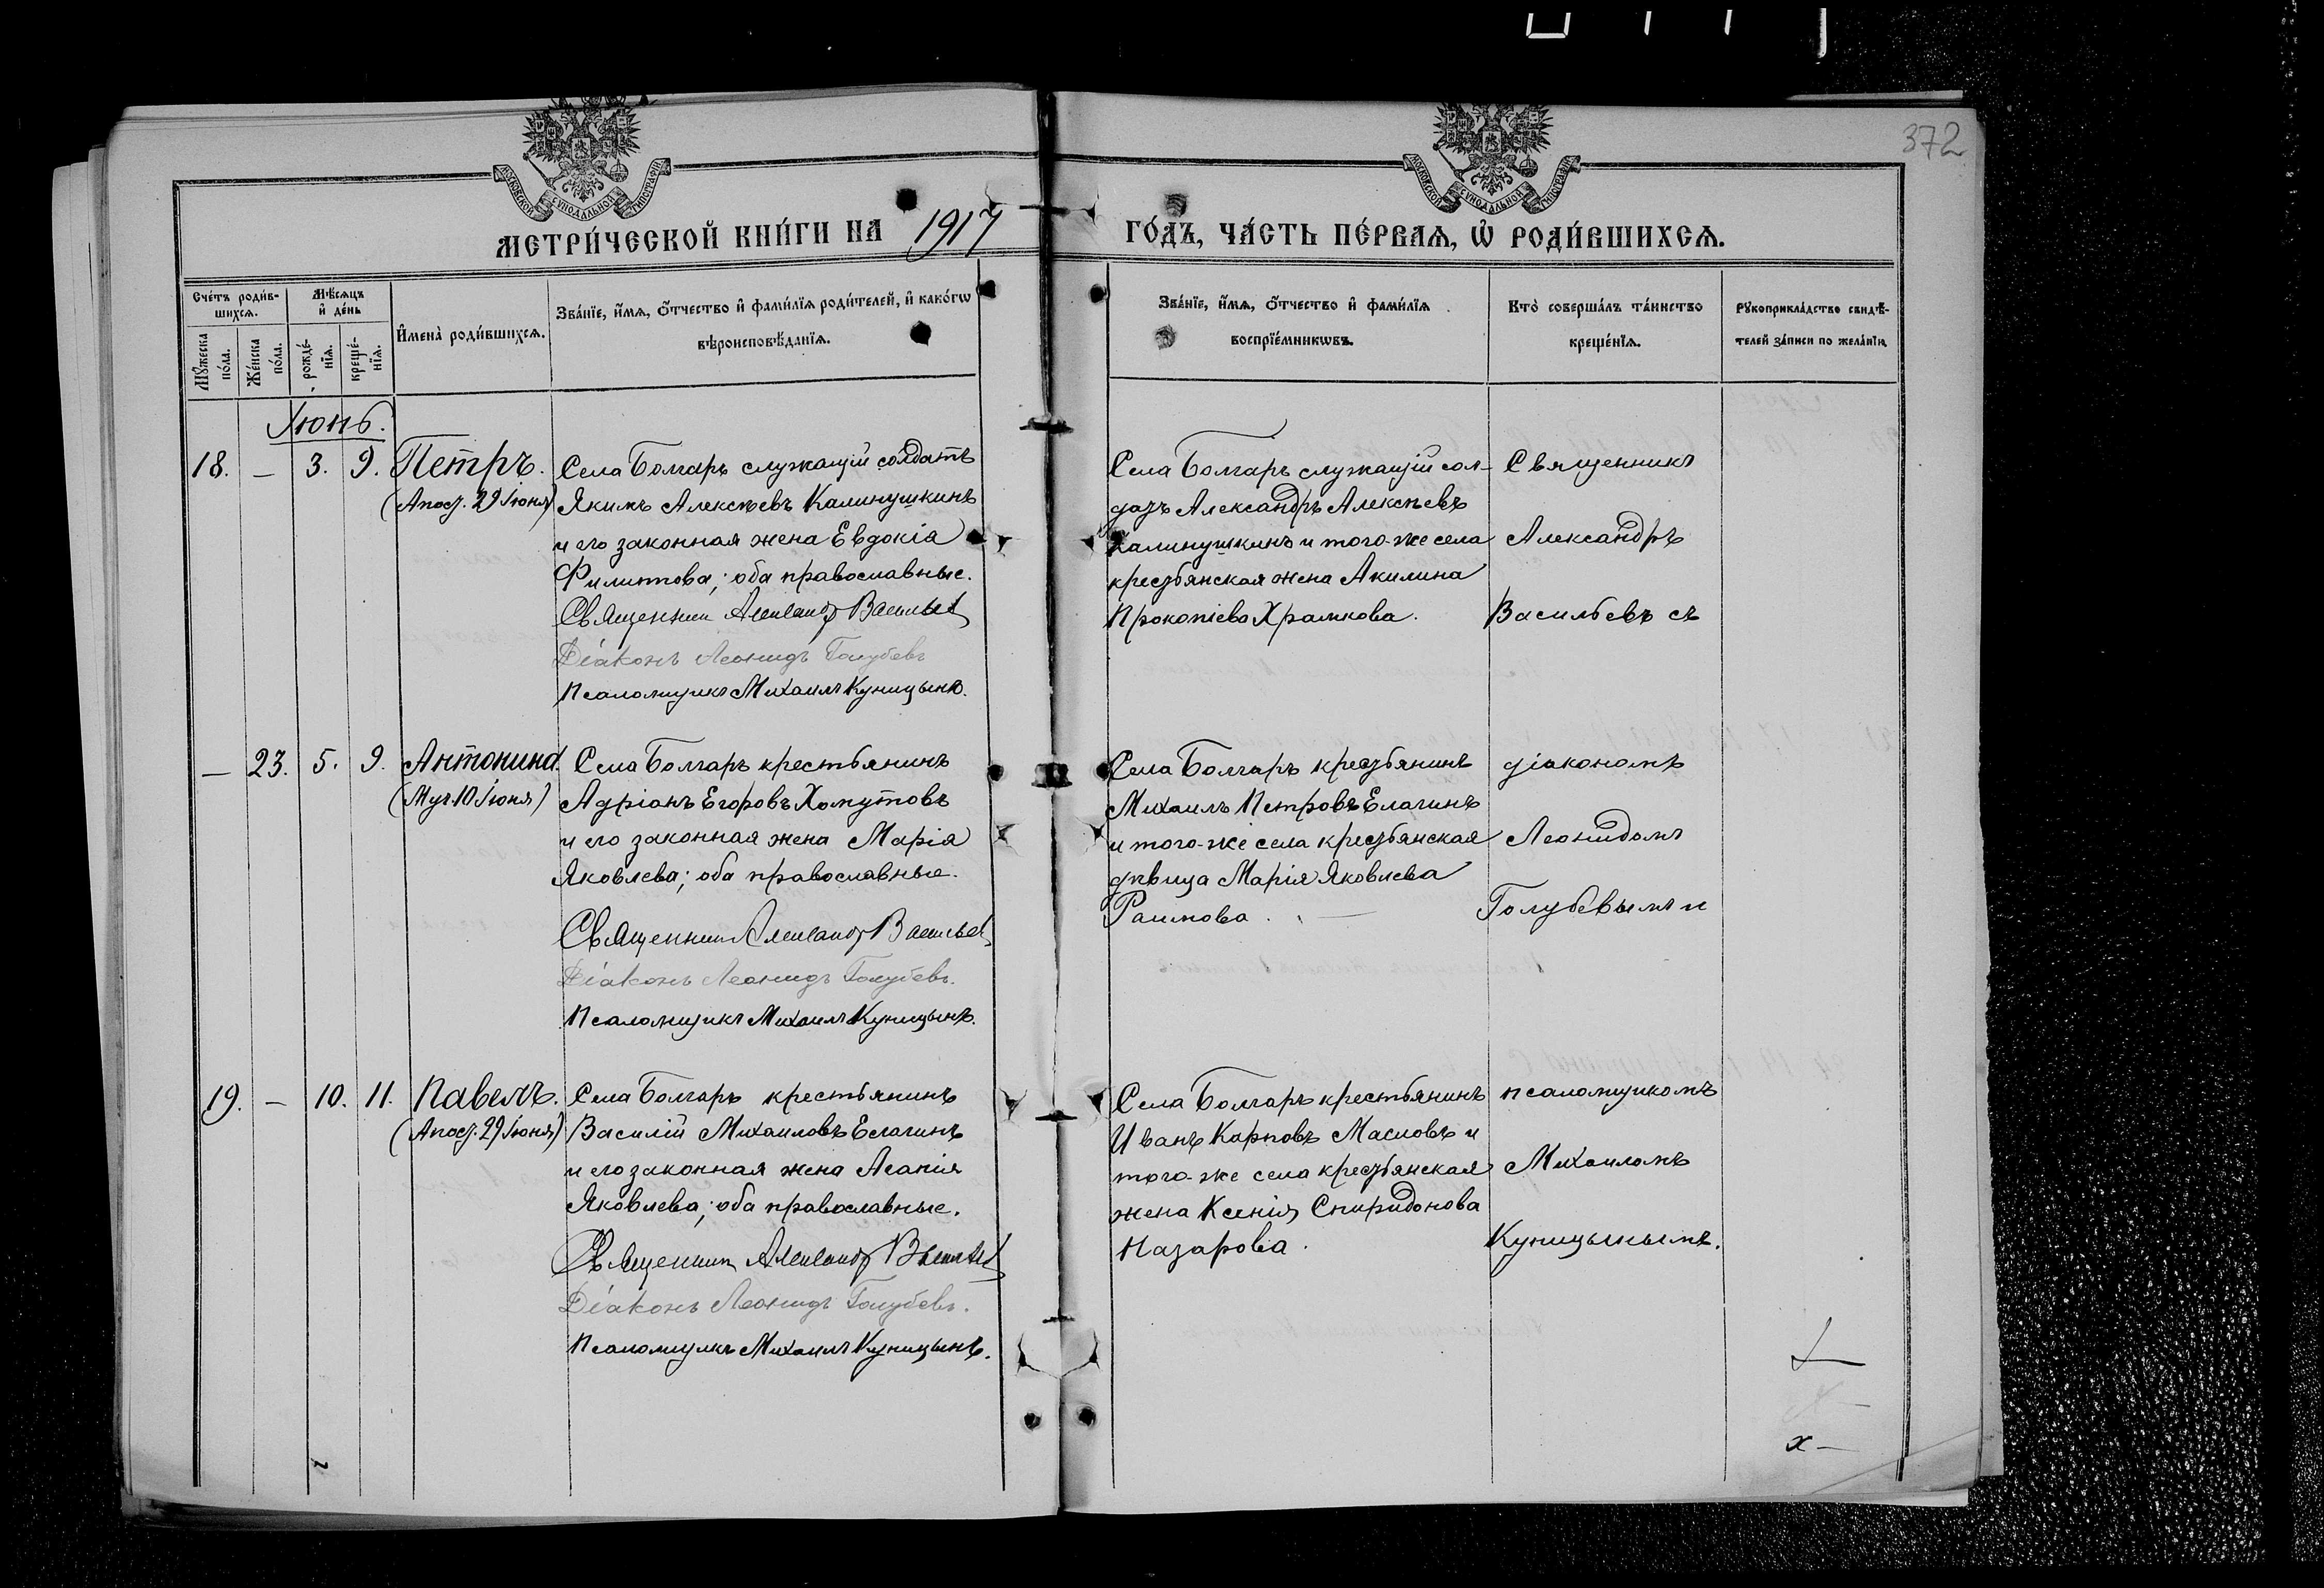 372
МОСКОВСКОЙ СѴНОДАЛЬНОЙ ТИПОГРАФІИ
МОСКОВСКОЙ СѴНОДАЛЬНОЙ ТИПОГРАФІИ
МЕТРИ́ЧЕСКОЙ КНИ́ГИ НА 1917 ГО́ДЪ, ЧА́СТЬ ПЕ́РВАѦ, Ѡ҆ РОДИ́ВШИХСѦ.
Сче́тъ роди́в-
шихсѧ.
Мꙋ́жеска по́ла.
Же́нска по́ла.
Мѣ́сѧцъ и҆ де́нь
рожде́-нїѧ.
креще́-нїѧ.
И҆мена̀ роди́вшихсѧ.
Зва́нїе, и҆́мѧ, ѻ҆́тчество и҆ фами́лїѧ роди́телей, и҆ како́гѡ
вѣроисповѣ́данїѧ.
Зва́нїе, и҆́мѧ, ѻ҆́тчество и҆ фами́лїѧ
воспрїе́мникѡвъ.
Кто̀ соверша́лъ та́инство
креще́нїѧ.
Рꙋкоприкла́дство свидѣ́-
телей за́писи по жела́нїю.
Іюнь.
18. — 3. 9. Петръ.
(Апост. 29 Іюня)
Села Болгаръ служащій солдатъ
Якимъ Алексѣевъ Калинушкинъ
и его законная жена Евдокія
Филиппова; оба православные.
Священникъ Александръ Васильевъ
Діаконъ Леонидъ Голубевъ
Псаломщикъ Михаилъ Куницынъ.
Села Болгаръ служащій сол-
датъ Александръ Алексѣевъ
Калинушкинъ и того-же села
крестьянская жена Акилина
Прокопіева Храмкова.
Священникъ
Александръ
Васильевъ съ
— 23. 5. 9. Антонина.
(Муч. 10 Іюня)
Села Болгаръ крестьянинъ
Адріанъ Егоровъ Хомутовъ
и его законная жена Марія
Яковлева; оба православные.
Священникъ Александръ Васильевъ
Діаконъ Леонидъ Голубевъ.
Псаломщикъ Михаилъ Куницынъ.
Села Болгаръ крестьянинъ
Михаилъ Петровъ Елагинъ
и того-же села крестьянская
дѣвица Марія Яковлева
діакономъ
Леонидомъ
Голубевымъ и
19. — 10. 11. Павелъ.
(Апост. 29 Іюня)
Села Болгаръ крестьянинъ
Василій Михаиловъ Елагинъ
и его законная жена Агапія
Яковлева; оба православные.
Священникъ Александръ Васильевъ
Діаконъ Леонидъ Голубевъ.
Псаломщикъ Михаилъ Куницынъ.
Села Болгаръ крестьянинъ
Иванъ Карповъ Масловъ и
того-же села крестьянская
жена Ксенія Спиридонова
Назарова.
псаломщикомъ
Михаиломъ
Куницынымъ.